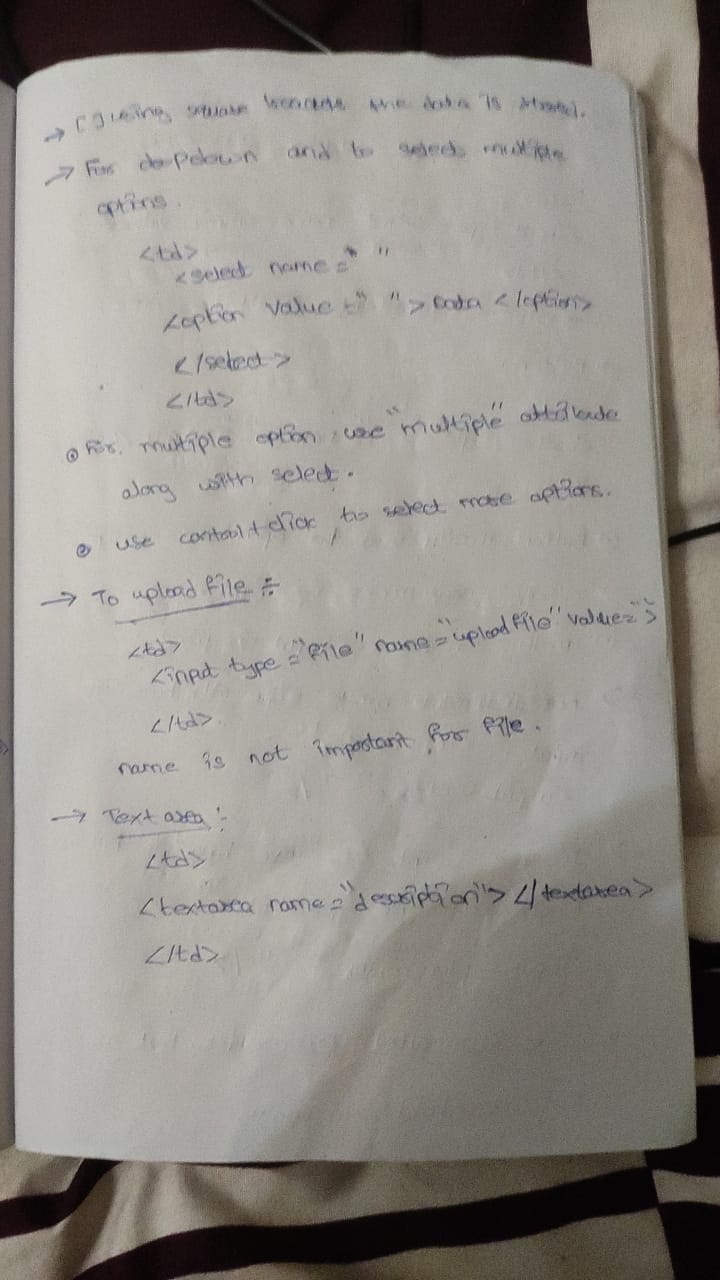 → [] using square brackets the data is stored.
→ For dropdown and to select multiple
options.
<td>
<select name=" "
<option value=" "> Data </option>
</select>
</td>
For multiple option use "multiple" attribute
along with select.
use control+click to select more options.
→ To upload file :-
<td>
<input type="file" name="uploadfile" value="">
</td>
name is not important for file.
→ Text area :-
<td>
<textarea name="description"> </textarea>
</td>